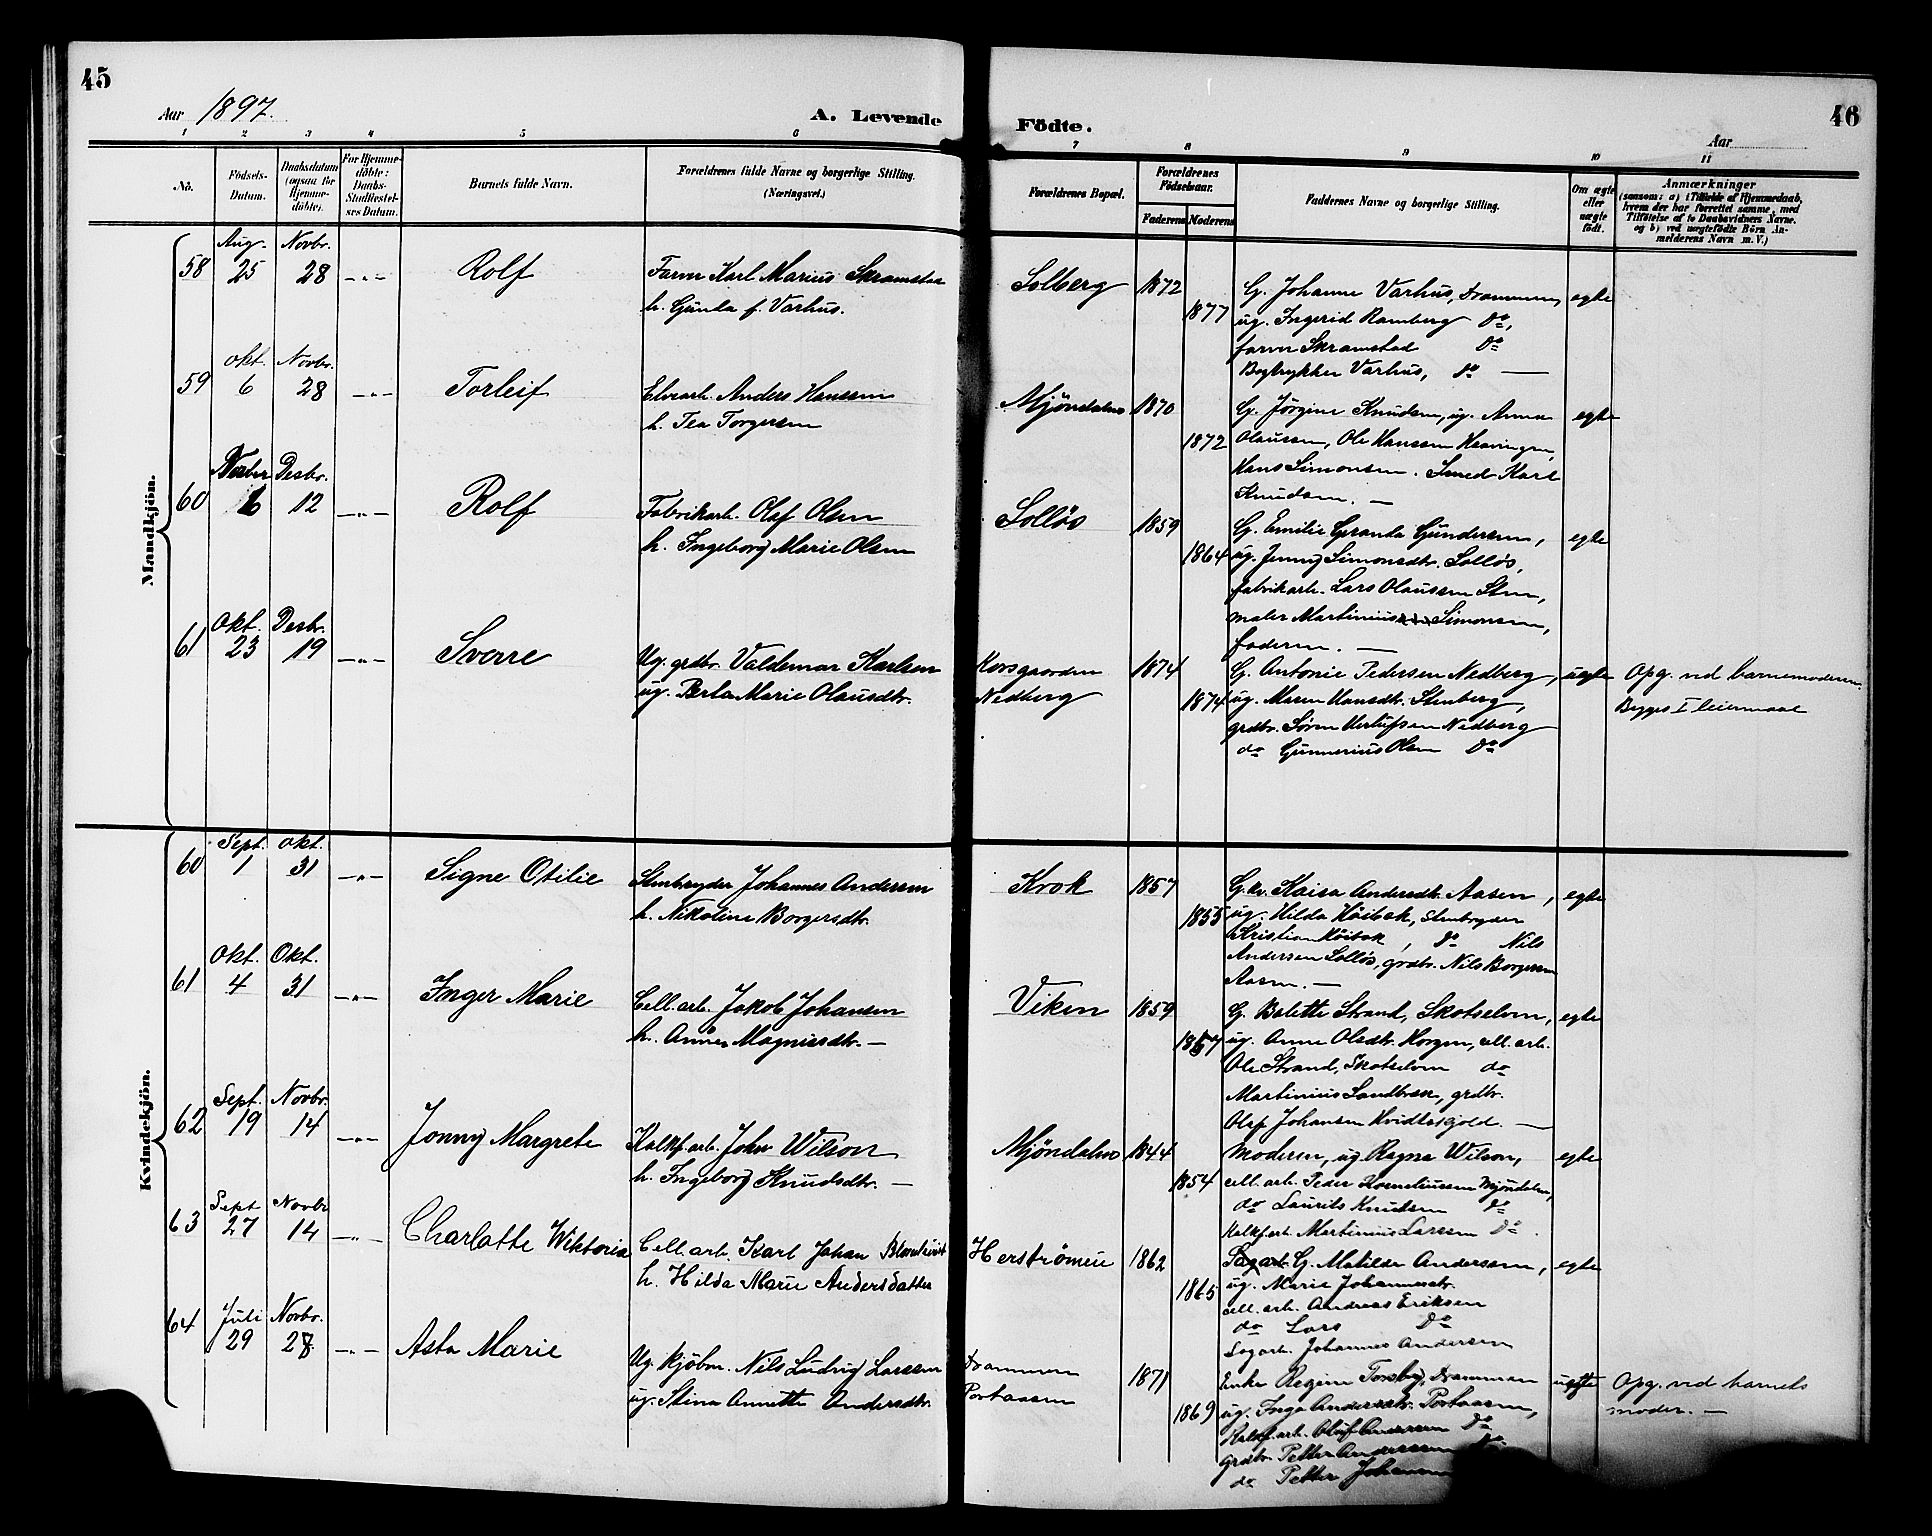 45
Aar 1897.
A. Levende
Födte.
46
Aar
1 2 3 4 5 6 7 8 9 10 11
No.
Födsels-Datum.
Daabsdatum (ogsaa for Hjemme-döbte).
For Hjemme-döbte: Daabs-Stadfæstel-ses Datum.
Barnets fulde Navn.
Forældrenes fulde Navne og borgerlige Stilling.
(Næringsvei.)
Forældrenes Bopæl.
Forældrenes Födselsaar.
Faderens Moderens
Faddernes Navne og borgerlige Stilling.
Om ægte eller uægte födt.
Anmærkninger
(saasom: a) i Tilfælde af Hjemmedaab, hvem der har forrettet samme, med Tilföielse af to Daabsvidners Navne, og b) ved uægtefödte Börn An-melderens Navn m. V.)
Mandkjön.
58 Aug. 25 Novbr. 28 — " — Rolf
Farver Karl Marius Skramstad
h. Gunla f. Varhus.
Solberg 1872 1877
G. Johanne Varhus, Drammen,
ug. Ingerid Ramberg Do,
farver Skramstad Do
Bogtrykker Varhus, do —
egte
59 Okt. 6 Novbr. 28 — " — Torleif
Elvearb. Anders Hanssen
h. Tea Torgersen
Mjöndalen 1870 1872
G. Jörgine Knudsen, ug. Anna
Olaussen, Ole Hanssen
Hans Simonsen. Smed Karl
Knudsen. —
egte
60 Novbr 6 Desbr. 12 — " — Rolf
Fabrikarb. Olaf Olsen
h. Ingeborg Marie Olsen
Solløs 1859 1864
G. Emilie Geranta Gundersen,
ug. Jenny Simonsdtr. Solløs,
fabrikarb. Lars Olaussen Sten,
maler Martinius Simonsen,
faderen. —
egte
61 Okt. 23 Desbr. 19 — " — Sverre
Ug. grdbr. Valdemar Karlsen
ug. Berta Marie Olausdtr.
Korsgaarden
Nedberg
1874 1874
G. Antonie Pedersen Nedberg,
ug. Maren Hansdtr. Stenberg,
grdbr. Søren Herlufsen Nedberg
do Gunnerius Olsen Do
uegte
Opg. ved barnemoderen.
Begges I leiermaal
Kvindekjön.
60 Sept. 1 Okt. 31 — " — Signe Otilie
Stenbryder Johannes Andersen
h. Nikoline Borgersdtr.
Krok 1857 1855
G.kv. Kaisa Andersdtr. Aasen,
ug. Hilda Höibak, stenbryder
Kristian Höibak, do Nils
Andersen Solløs, grdbr. Nils Borgersen
Aasen. —
egte
61 Okt. 4 Okt. 31 — " — Inger Marie
Cell. arb. Jakob Johansen
h. Anne Magnusdtr. —
Viken 1859 1857
G. Balette Strand, Skotselven,
ug. Anne Olsdtr. Horgen, cell. arb.
Ole Strand, Skotselven do
Martinius Sandbæk, grdbr.
Olaf Johansen Hvidtesgold. —
egte
62 Sept. 19 Novbr. 14 — " — Jonny Margrete
Kalkf. arb. John Wilson
h. Ingeborg Knudsdtr. —
Mjöndalen 1844 1854
Moderen, ug. Ragna Wilson,
cell. arb. Peder Korneliussen Mjöndalen,
do Laurits Knudsen do
Kalkf. arb. Martinius Larssen Do.
egte
63 Sept 27 Novbr 14 — " — Charlotte Wiktoria
Cell. arb. Karl Johan Blomkvist
h. Hilda Marie Andersdatter
Herströmen 1862 1865
Sagarb. G. Matilde Andersen,
ug. Marie Johannesdtr.
cell. arb. Andreas Eriksen
do Lars Do
Sagarb. Johannes Andersen
egte
64 Juli 29 Novbr. 28 — " — Asta Marie
Ug. kjöbm. Nils Ludvig Larssen
ug. Stina Annette Andersdtr.
Drammen
Portaasen
1871 1869
Enke Regine Torsby, Drammen
ug. Inga Andersdtr. Portaasen,
Kalkf. arb. Oluf Andersen Do
grdbr. Petter Andersen Do
do Petter Johansen
uegte
Opg. ved barnets
moder. —